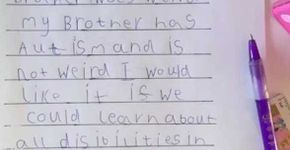 my Brother has
Autism and is
not weird I would
like it if we
could learn about
all disibilities in